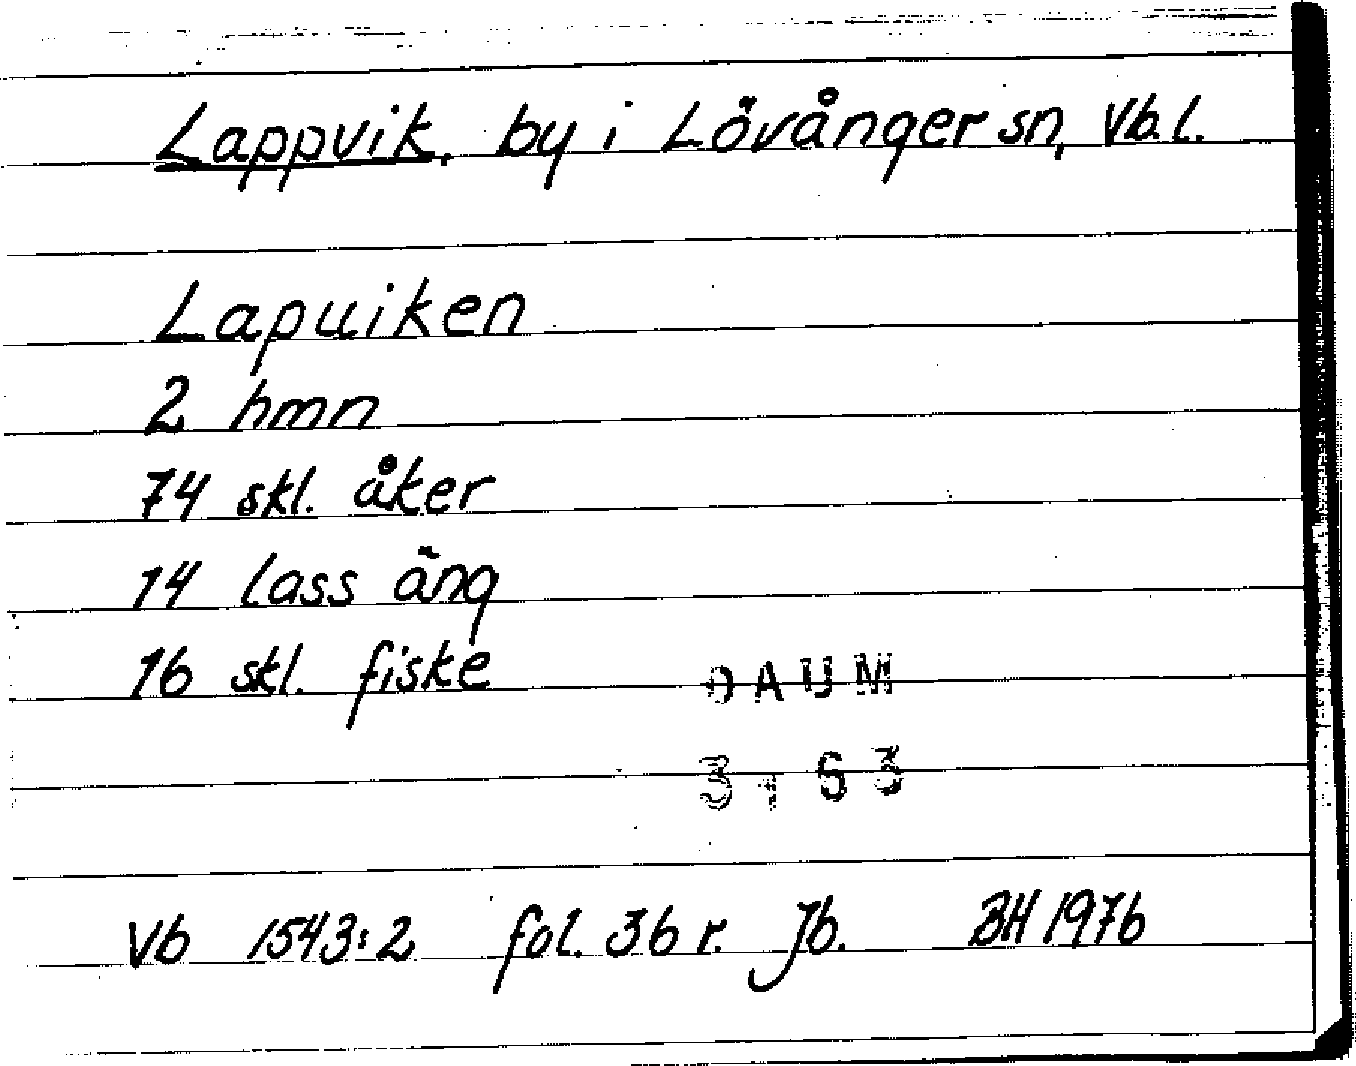 Lappvik, by i Lövånger sn, Vb. l.
Lapuiken
2 hmn
74 skl. åker
14 lass äng
16 skl. fiske
DAUM
Vb 1543:2 fol. 36 r. Jb. BH 1976